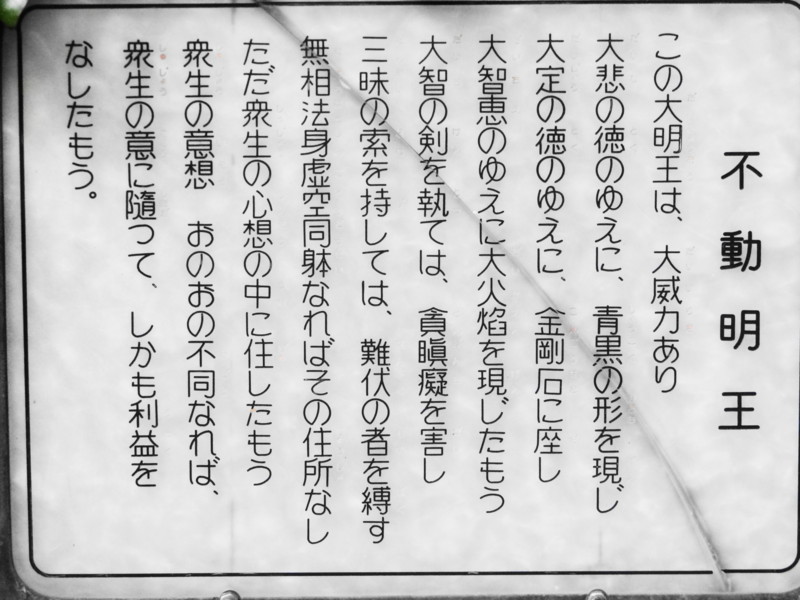 不動明王
この大明王は、大威力あり
大悲の徳のゆえに、青黒の形を現じ
大定の徳のゆえに、金剛石に座し
大智恵のゆえに大火焰を現じたもう
大智の剣を執ては、貪瞋癡を害し
三昧の索を持しては、難伏の者を縛す
無相法身虚空同躰なればその住所なし
ただ衆生の心想の中に住したもう
衆生の意想 おのおの不同なれば、
衆生の意に隨つて、しかも利益を
なしたもう。